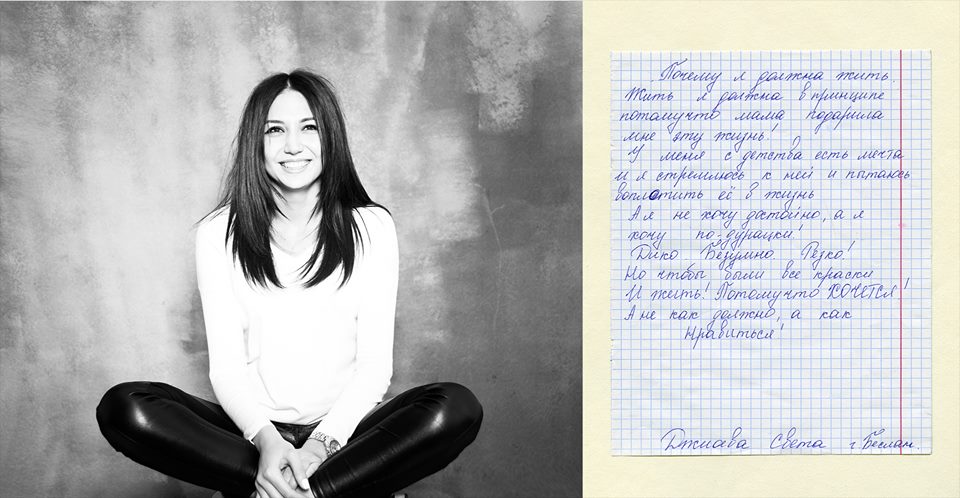 Почему я должна жить.
Жить я должна в принципе
потомучто мама подарила
мне эту жизнь!
У меня с детства есть мечта
и я стремлюсь к ней и пытаюсь
воплотить её в жизнь
А я не хочу достойно, а я
хочу по-дурацки!
Дико Безумно Резко!
Но чтобы были все краски
И жить! Потомучто ХОЧЕТСЯ!
А не как должно, а как
Нравиться!
Джиава Света г. Беслан.